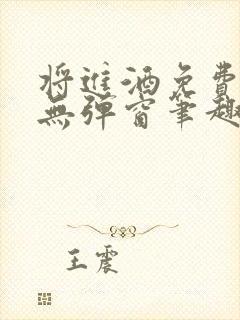 将进酒免费
无弹窗笔趣
王震